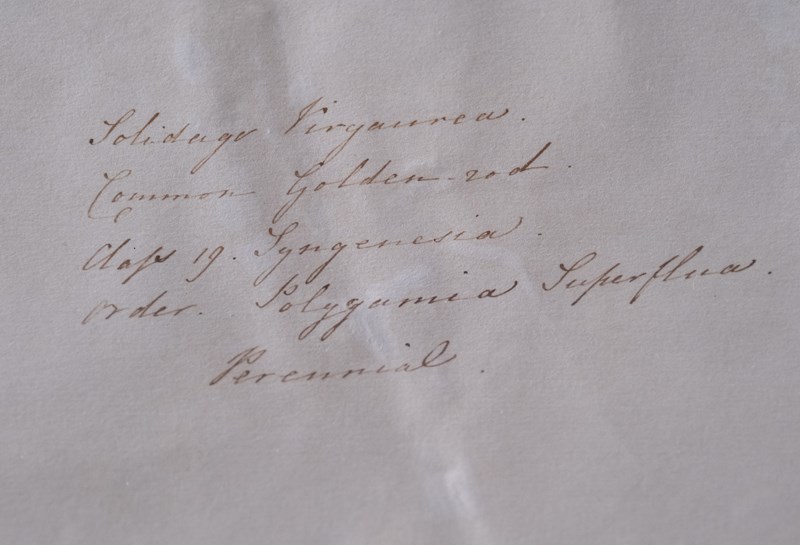 Solidago Virgaurea.
Common Golden-rod.
Claſs 19. Syngenesia.
order. Polygamia Superflua.
Perennial.